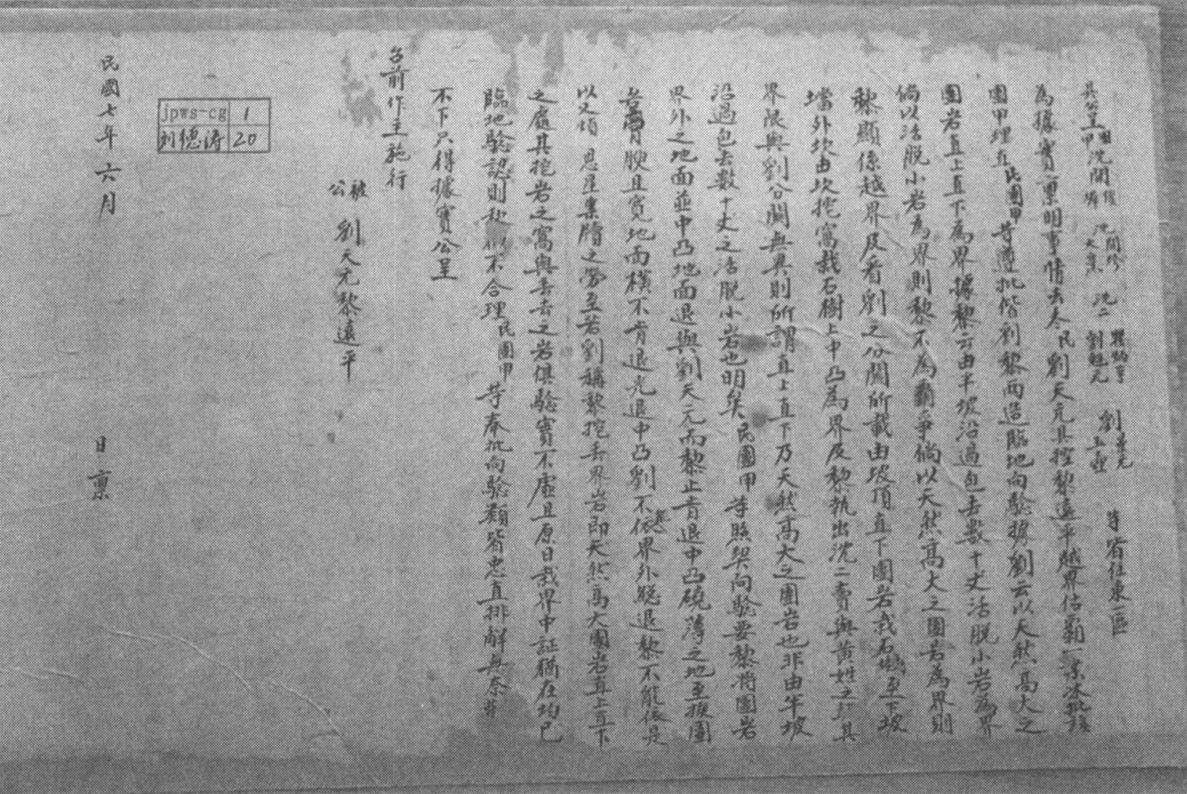 具公呈團甲沈開 沈開 沈二 劉魁元 劉 等省住東一區
為據實稟明事情去冬民劉天元具控黎遠平越界估霸一案沐批該
團甲理直民團甲等遵批偕劉黎兩造臨地向驗據劉云以天然高大之
圍岩直上直下為界據黎云由半坡沿過包去數十丈活脫小岩為界
倘以活脫小岩為界則黎不為霸爭倘以天然高大之圍岩為界則
黎顯係越界及看劉之分關所載由坡頂直下圍岩栽石 至下坡
壋外坎由坎挖窩栽石樹上中凸為界及黎執出沈二賣與黃姓之 其
界限與劉分關無異則所謂直上直下乃天然高大之圍岩也非由半坡
沿過包去數十丈之活脫小岩也明矣民團甲等照契向驗要黎將圍岩
界外之地面並中凸地面退與劉天元而黎止肯退中凸磽薄之地至挨圍
岩膏腴且寬地面橫不肯退光退中凸劉不依界外總退黎不能依是
以又煩 恩座案牘之勞至若劉稱黎挖去界岩即天然高大圍岩直上直下
之處其挖岩之窩與丟去之岩俱驗實不虛且原日栽界中証猶在均已
臨地驗認則 不合理民團甲等奉批向驗顯皆忠直排解無奈
不下只得據實公呈
台前作主施行
公 被 劉天元黎遠平
jpws-cg 1
刘德涛 20
民國七年六月 日稟